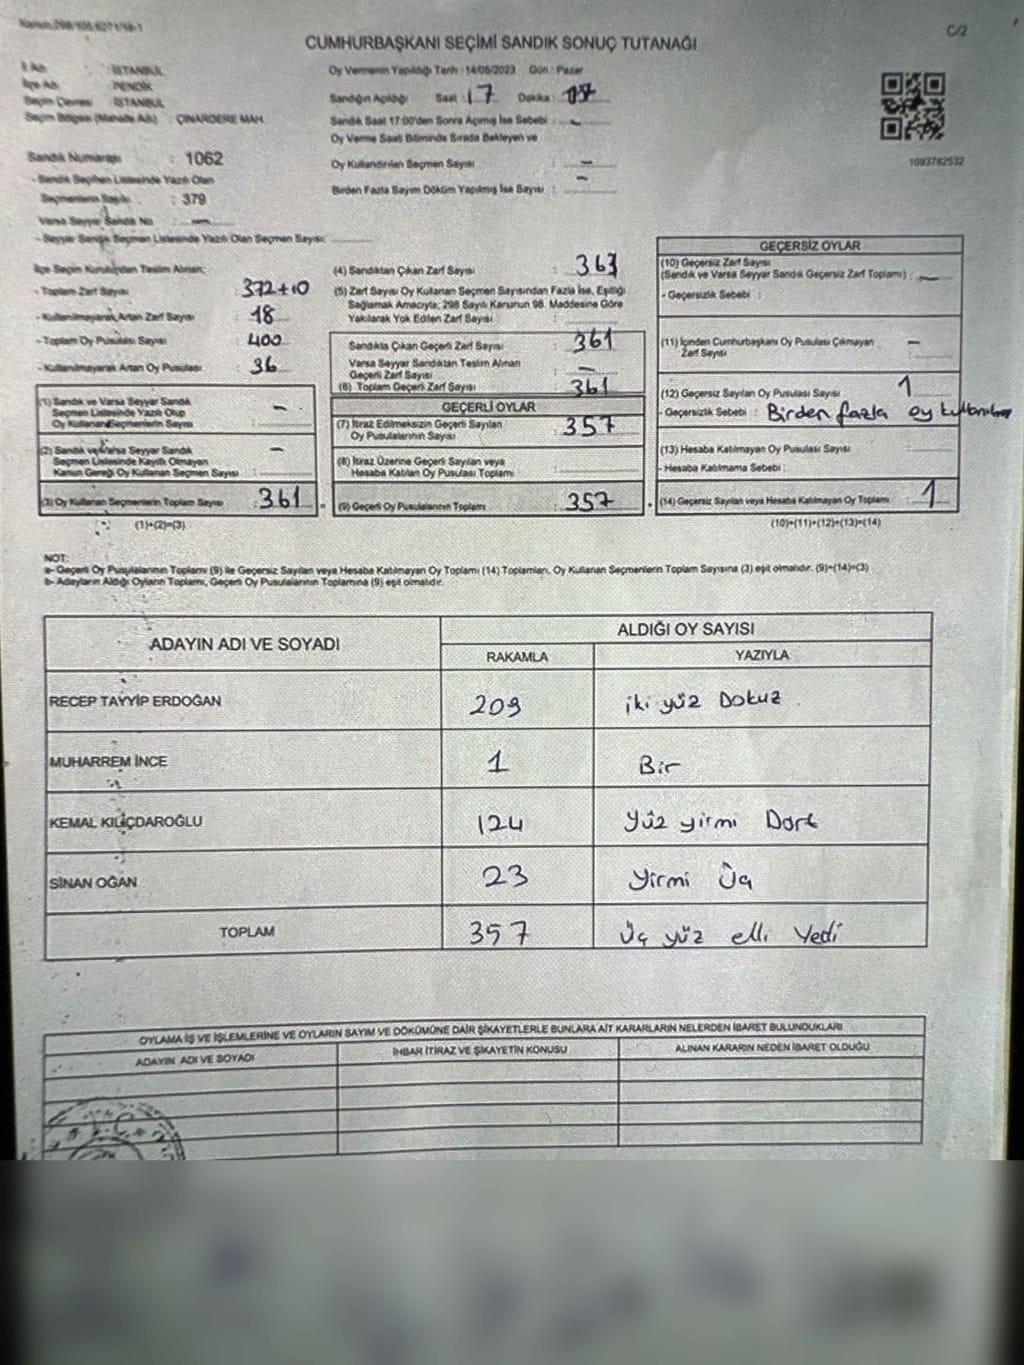 Kanun:298/105,6271/18-1
C/2
CUMHURBAŞKANI SEÇİMİ SANDIK SONUÇ TUTANAĞI
İl Adı : İSTANBUL
İlçe Adı : PENDİK
Seçim Çevresi : İSTANBUL
Seçim Bölgesi (Mahalle Adı) : ÇINARDERE MAH.
Sandık Numarası : 1062
- Sandık Seçmen Listesinde Yazılı Olan
Seçmenlerin Sayısı : 379
Varsa Seyyar Sandık No : —
- Seyyar Sandık Seçmen Listesinde Yazılı Olan Seçmen Sayısı:
Oy Vermenin Yapıldığı Tarih : 14/05/2023 Gün : Pazar
Sandığın Açıldığı Saat : 17 Dakika :
Sandık Saat 17:00'den Sonra Açılmış İse Sebebi : —
Oy Verme Saati Bitiminde Sırada Bekleyen ve
Oy Kullandırılan Seçmen Sayısı : —
Birden Fazla Sayım Döküm Yapılmış İse Sayısı : —
1093782532
İlçe Seçim Kurulundan Teslim Alınan;
- Toplam Zarf Sayısı : 372+10
- Kullanılmayarak Artan Zarf Sayısı : 18
- Toplam Oy Pusulası Sayısı : 400
- Kullanılmayarak Artan Oy Pusulası : 36
(1) Sandık ve Varsa Seyyar Sandık
Seçmen Listesinde Yazılı Olup
Oy Kullanan Seçmenlerin Sayısı : —
(2) Sandık ve Varsa Seyyar Sandık
Seçmen Listesinde Kayıtlı Olmayan
Kanun Gereği Oy Kullanan Seçmen Sayısı : —
(3) Oy Kullanan Seçmenlerin Toplam Sayısı : 361
(1)+(2)=(3)
(4) Sandıktan Çıkan Zarf Sayısı :
(5) Zarf Sayısı Oy Kullanan Seçmen Sayısından Fazla İse, Eşitliği
Sağlamak Amacıyla; 298 Sayılı Kanunun 98. Maddesine Göre
Yakılarak Yok Edilen Zarf Sayısı :
Sandıkta Çıkan Geçerli Zarf Sayısı : 361
Varsa Seyyar Sandıktan Teslim Alınan
Geçerli Zarf Sayısı : —
(6) Toplam Geçerli Zarf Sayısı : 361
GEÇERLİ OYLAR
(7) İtiraz Edilmeksizin Geçerli Sayılan
Oy Pusulalarının Sayısı : 357
(8) İtiraz Üzerine Geçerli Sayılan veya
Hesaba Katılan Oy Pusulası Toplamı :
(9) Geçerli Oy Pusulalarının Toplamı : 357
GEÇERSİZ OYLAR
(10) Geçersiz Zarf Sayısı
(Sandık ve Varsa Seyyar Sandık Geçersiz Zarf Toplamı) : —
- Geçersizlik Sebebi :
(11) İçinden Cumhurbaşkanı Oy Pusulası Çıkmayan
Zarf Sayısı : —
(12) Geçersiz Sayılan Oy Pusulası Sayısı : 1
- Geçersizlik Sebebi : Birden fazla oy
(13) Hesaba Katılmayan Oy Pusulası Sayısı :
- Hesaba Katılmama Sebebi :
(14) Geçersiz Sayılan veya Hesaba Katılmayan Oy Toplamı : 1
(10)+(11)+(12)+(13)=(14)
NOT:
a- Geçerli Oy Pusulalarının Toplamı (9) ile Geçersiz Sayılan veya Hesaba Katılmayan Oy Toplamı (14) Toplamları, Oy Kullanan Seçmenlerin Toplam Sayısına (3) eşit olmalıdır. (9)+(14)=(3)
b- Adayların Aldığı Oyların Toplamı, Geçerli Oy Pusulalarının Toplamına (9) eşit olmalıdır.
ADAYIN ADI VE SOYADI
ALDIĞI OY SAYISI
RAKAMLA YAZIYLA
RECEP TAYYİP ERDOĞAN 209 iki yüz Dokuz
MUHARREM İNCE 1 Bir
KEMAL KILIÇDAROĞLU 124 Yüz yirmi Dört
SİNAN OĞAN 23 Yirmi Üç
TOPLAM 357 Üç yüz elli Yedi
OYLAMA İŞ VE İŞLEMLERİNE VE OYLARIN SAYIM VE DÖKÜMÜNE DAİR ŞİKAYETLERLE BUNLARA AİT KARARLARIN NELERDEN İBARET BULUNDUKLARI
ADAYIN ADI VE SOYADI İHBAR İTİRAZ VE ŞİKAYETİN KONUSU ALINAN KARARIN NEDEN İBARET OLDUĞU